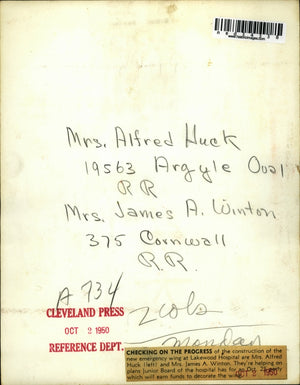 Mrs. Alfred Huck
19563 Argyle Oval
RR
Mrs. James A. Winton
375 Cornwall
R.R.
A 734
2 cols
Monday
CLEVELAND PRESS
OCT 2 1950
REFERENCE DEPT.
CHECKING ON THE PROGRESS of the construction of the
new emergency wing at Lakewood Hospital are Mrs. Alfred
Huck (left) and Mrs. James A. Winton. They're helping on
plans Junior Board of the hospital has for an Oct. 25 party
which will earn funds to decorate the
1950